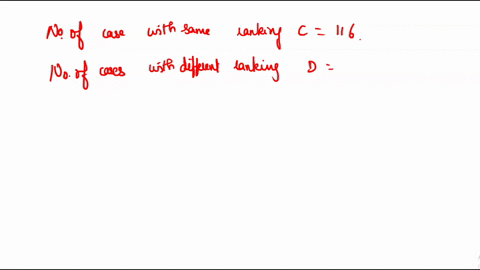 No. of case with same ranking C = 116.
No. of cases with different ranking D =